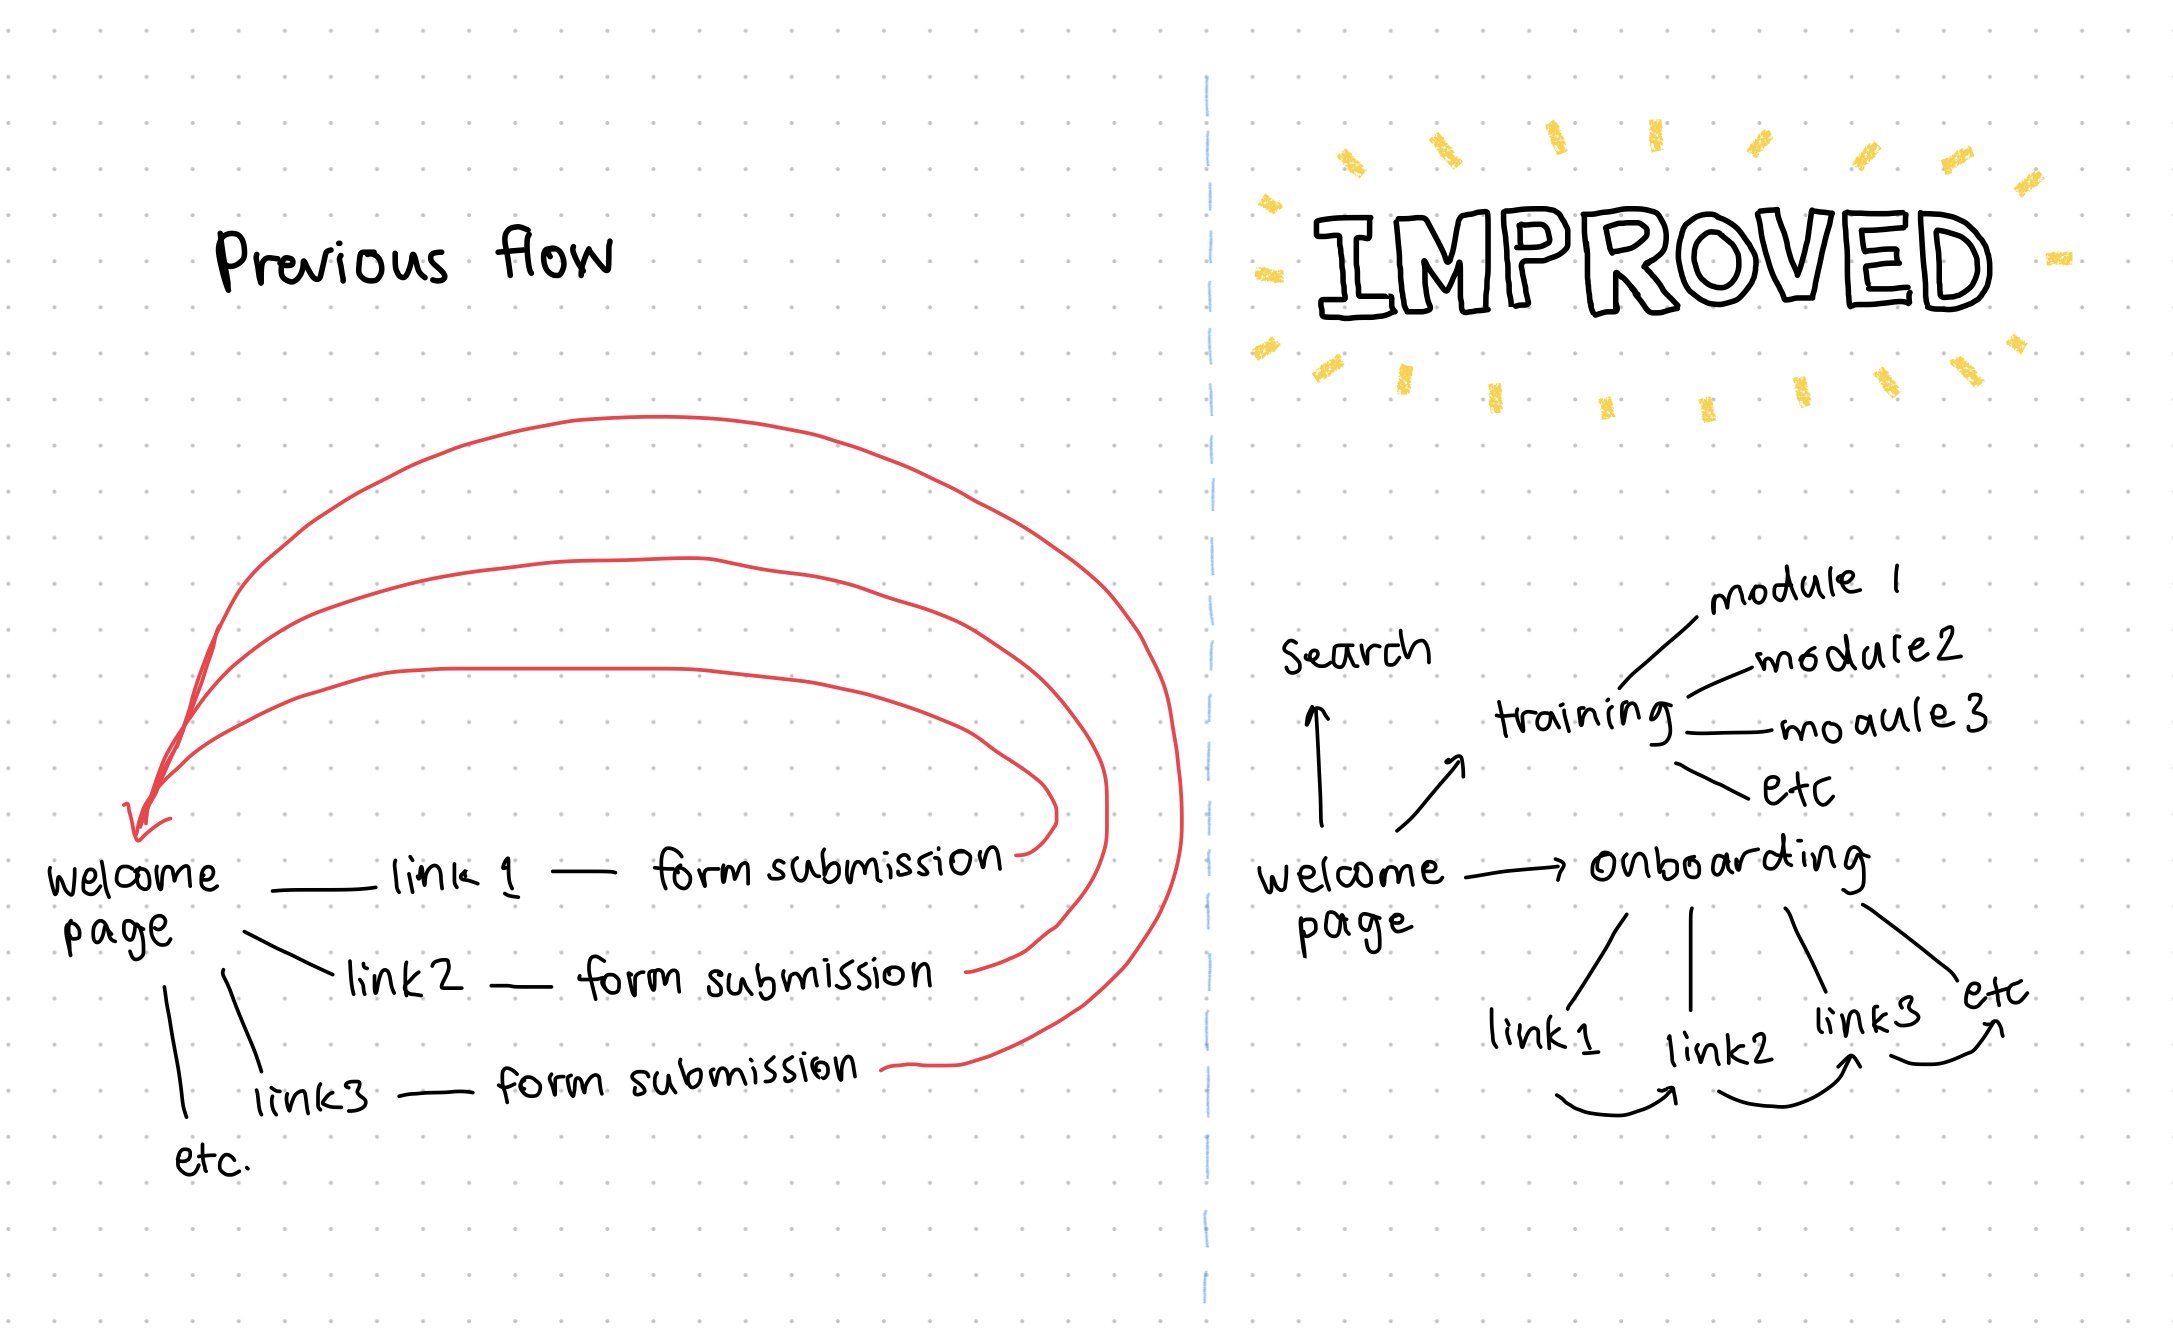 Previous flow
welcome
page
link 1
form submission
link2
form submission
link3
form submission
etc.
IMPROVED
search
training
module 1
module2
module3
etc
welcome
page
onboarding
link1
link2
link3
etc